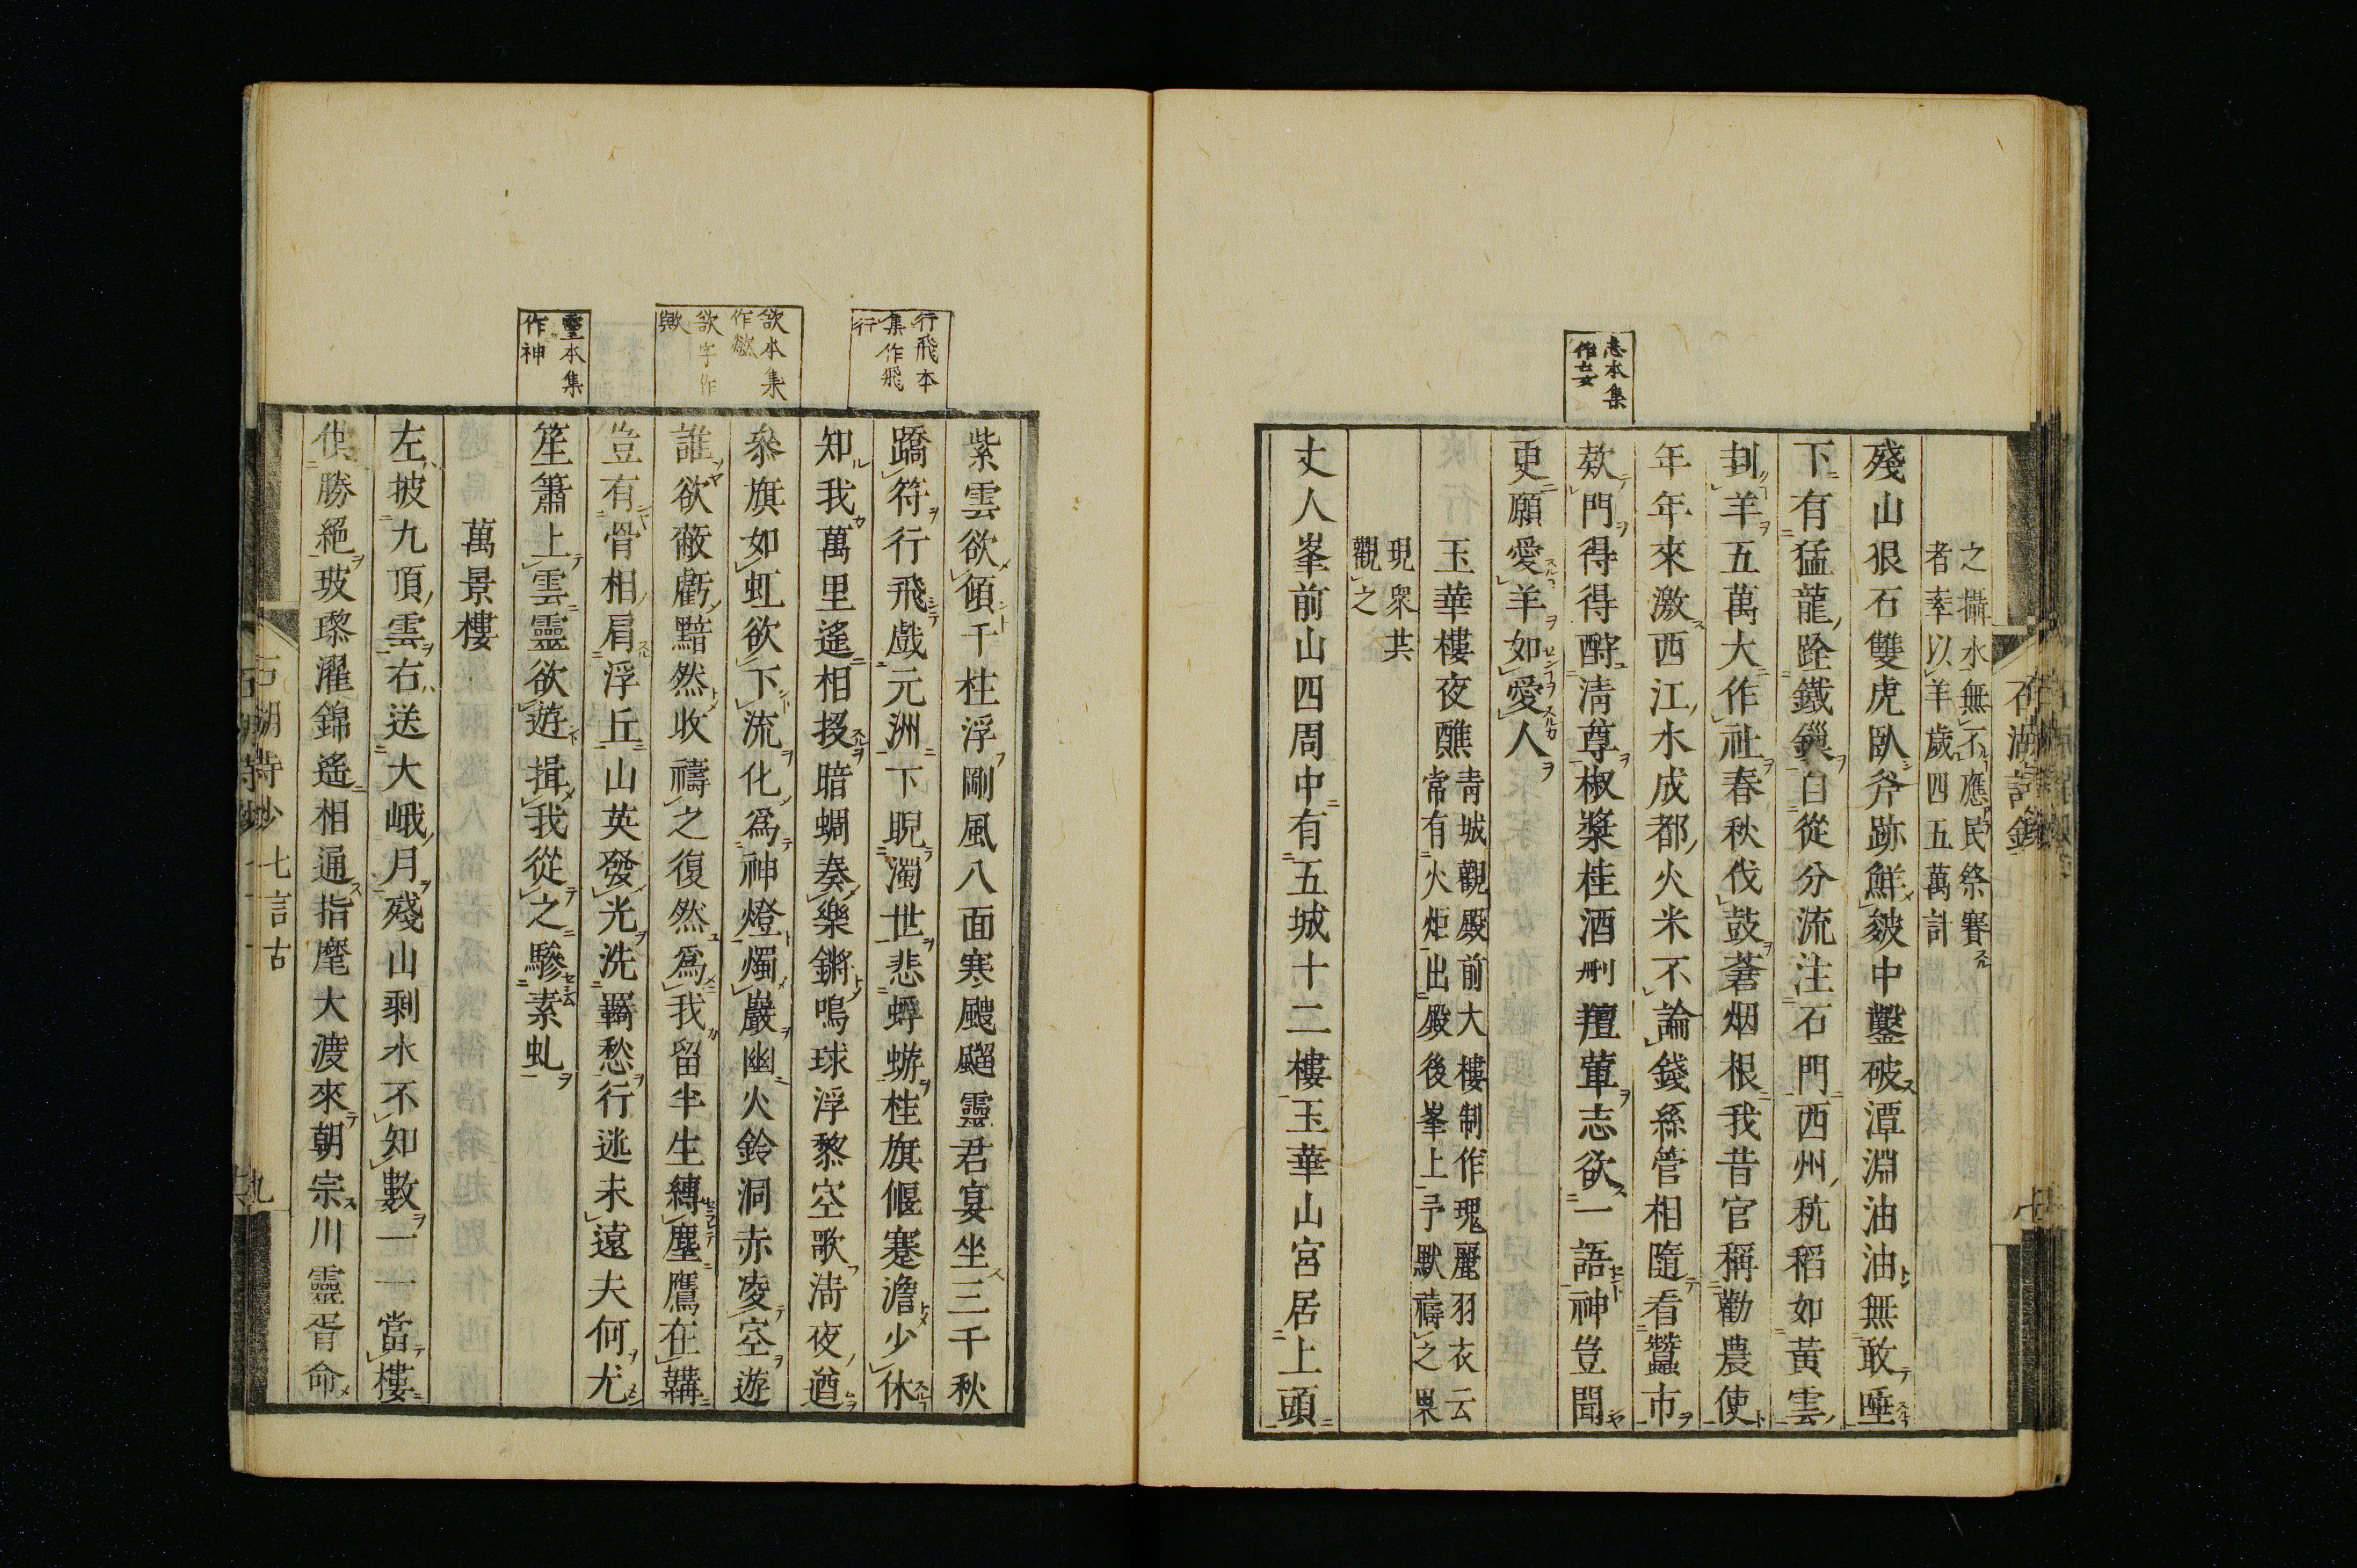 志本集
作妄
之攝水無不應民祭賽
者率以羊歲四五萬計
殘山狠石雙虎臥斧跡鮮皴中鑿破潭淵油油無敢唾
下有猛龍跧鐵鏁自從分流注石門西州秔稻如黃雲
刲羊五萬大作社春秋伐鼓蒼烟根我昔官稱勸農使
年年來激西江水成都火米不論錢絲管相隨看蠶市
欵門得得酹淸尊椒漿桂酒刪羶葷志欲一語神豈聞
更願愛羊如愛人
玉華樓夜醮
靑城觀殿前大樓制作瑰麗羽衣云
常有火炬出殿後峯上予默禱之果
現衆共
觀之
丈人峯前山四周中有五城十二樓玉華山宮居上頭
行飛本
集作飛
行
欲本集
作歘
欲字作
靈本集
作神
紫雲欲傾千柱浮剛風八面寒颼飀靈君宴坐三千秋
蹻符行飛戲元洲下睨濁世悲蜉蝣桂旗偃蹇澹少休
知我萬里遙相投暗蜩奏樂鏘鳴球浮黎空歌淸夜遒
參旗如虹欲下流化爲神燈燭巖幽火鈴洞赤凌空遊
誰欲蔽虧黯然收禱之復然爲我留半生縛塵鷹在韝
豈有骨相肩浮丘山英發光洗羈愁行迷未遠夫何尤
笙簫上雲靈欲遊揖我從之驂素虬
萬景樓
左披九頂雲右送大峨月殘山剩水不知數一一當樓
供勝絕玻瓈濯錦遙相通指麾大渡來朝宗川靈胥命
石湖詩鈔 七言古 九